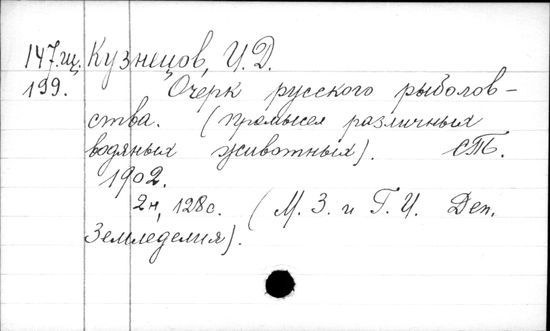 147.щ. Кузнецов, И.Д.
199. Очерк русского рыболов-
ства. (промысел различных
водяных животных). СПБ.
1902.
2н, 128с. (М. З. и Г. И. Деп.
Земледелия).